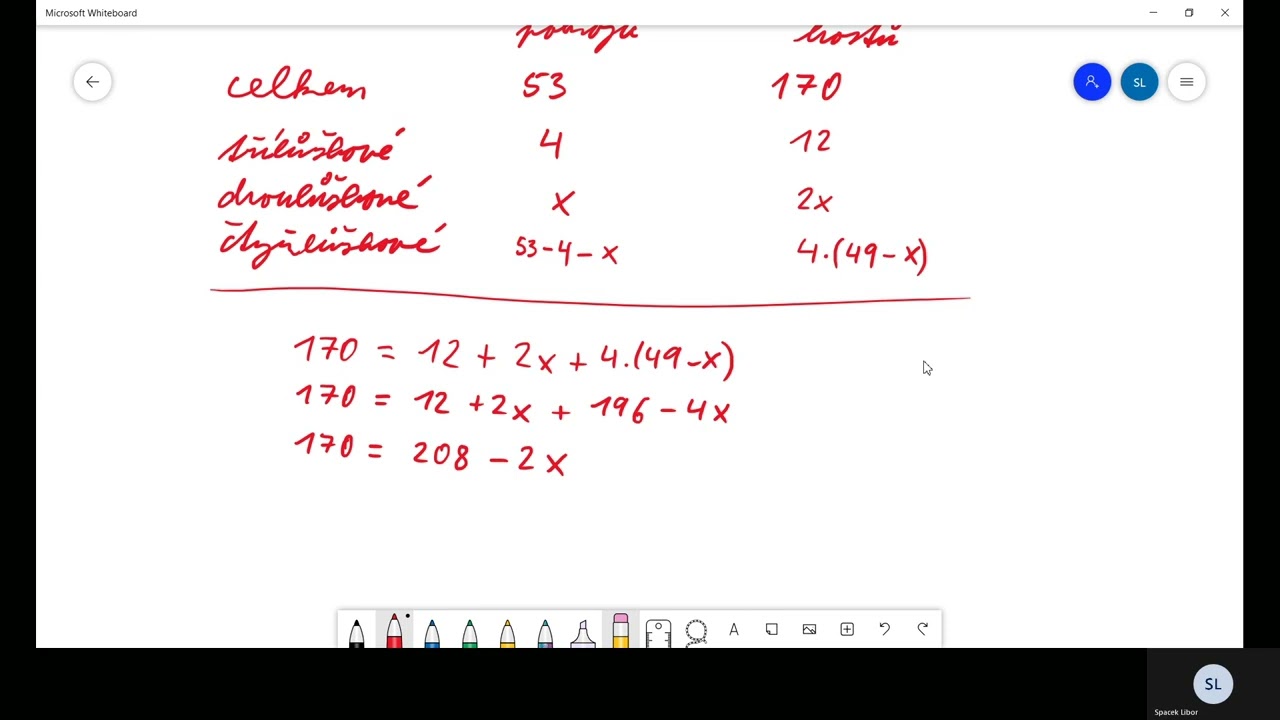 Microsoft Whiteboard
pokojů hostů
celkem 53 170
třílůžkové 4 12
dvoulůžkové x 2x
čtyřlůžkové 53-4-x 4.(49-x)
170 = 12 + 2x + 4.(49-x)
170 = 12 +2x + 196 - 4x
170 = 208 - 2x
SL
A
SL
Spacek Libor